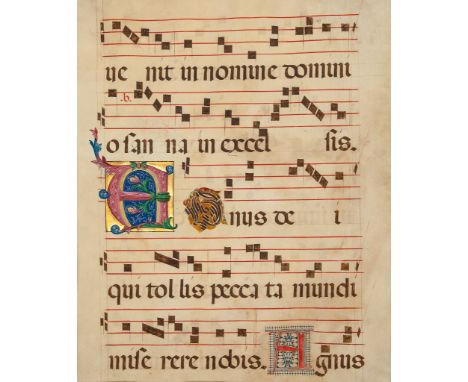 ue nit in nomine domini
.b.
o san na in excel sis.
A Gnus de i
qui tol lis pecca ta mundi
mise rere nobis. Agnus